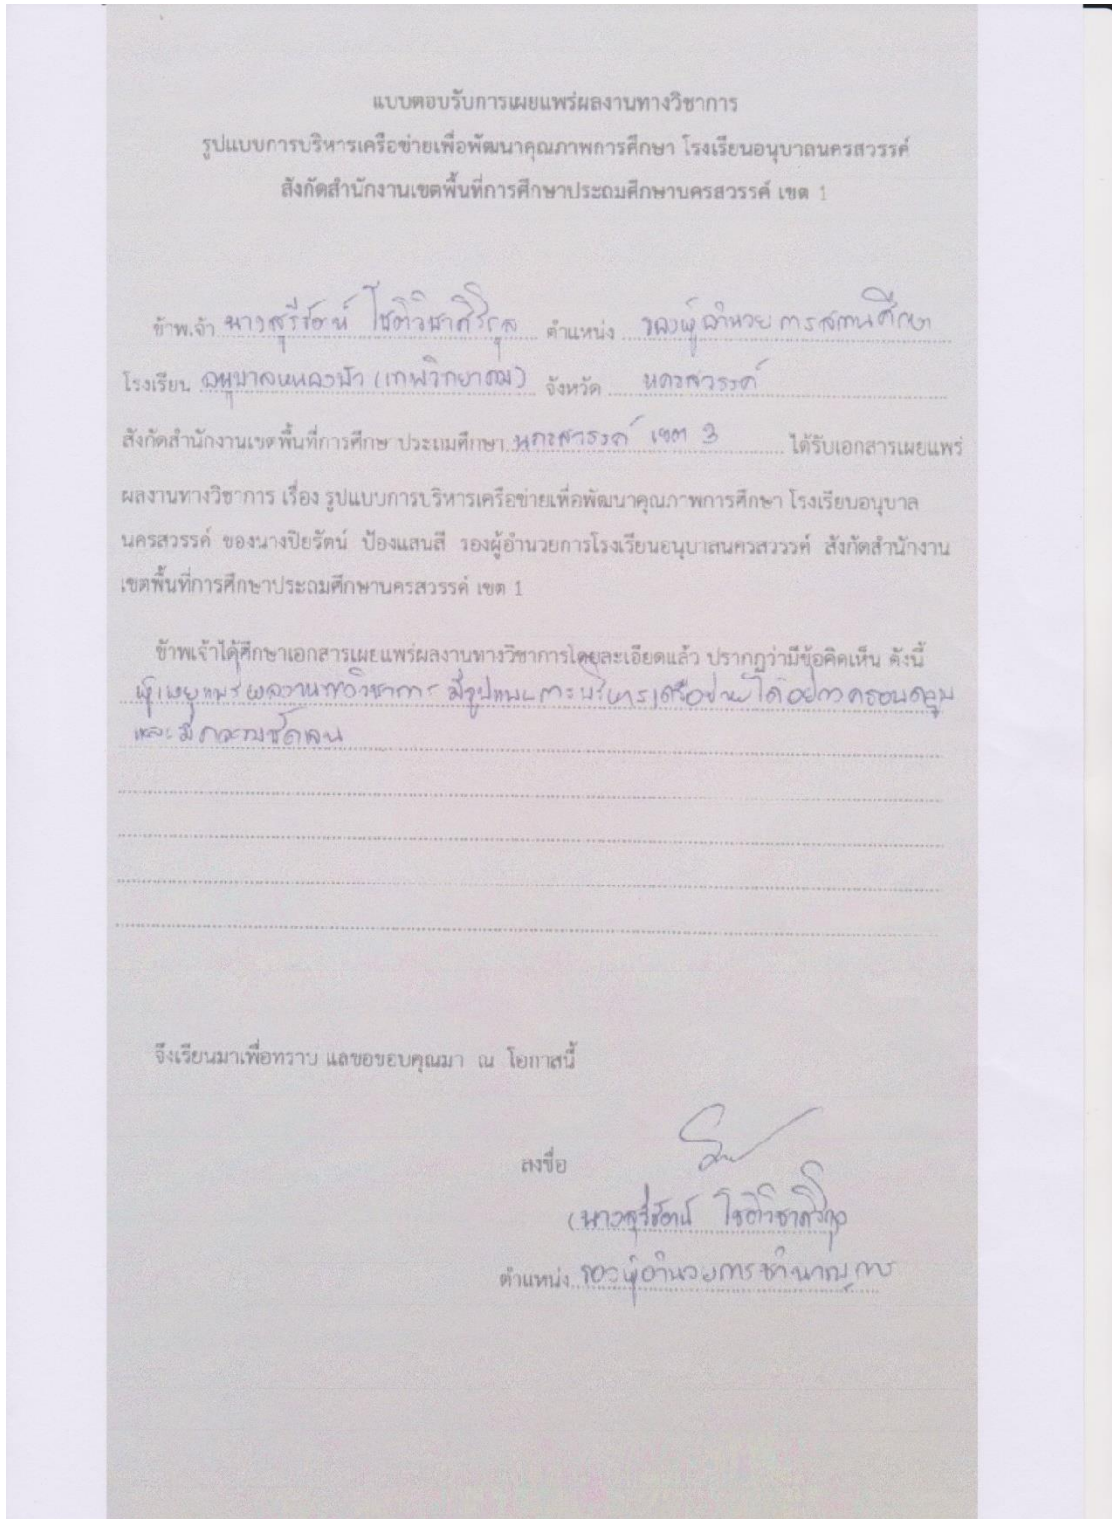 แบบตอบรับการเผยแพร่ผลงานทางวิชาการ
รูปแบบการบริหารเครือข่ายเพื่อพัฒนาคุณภาพการศึกษา โรงเรียนอนุบาลนครสวรรค์
สังกัดสำนักงานเขตพื้นที่การศึกษาประถมศึกษานครสวรรค์ เขต 1
ข้าพเจ้า นางสุรีรัตน์ โชติวิชาศิริกุล ตำแหน่ง รองผู้อำนวยการสถานศึกษา
โรงเรียน อนุบาลหนองบัว (เทพวิทยาคม) จังหวัด นครสวรรค์
สังกัดสำนักงานเขตพื้นที่การศึกษ ประถมศึกษา นครสวรรค์ เขต 3 ได้รับเอกสารเผยแพร่
ผลงานทางวิชาการ เรื่อง รูปแบบการบริหารเครือข่ายเพื่อพัฒนาคุณภาพการศึกษา โรงเรียนอนุบาล
นครสวรรค์ ของนางปิยรัตน์ ป้องแสนสี รองผู้อำนวยการโรงเรียนอนุบาลนครสวรรค์ สังกัดสำนักงาน
เขตพื้นที่การศึกษาประถมศึกษานครสวรรค์ เขต 1
ข้าพเจ้าได้ศึกษาเอกสารเผยแพร่ผลงานทางวิชาการโดยละเอียดแล้ว ปรากฏว่ามีข้อคิดเห็น ดังนี้
ผู้เผยแพร่ผลงานทางวิชาการ มีรูปแบบการบริหารเครือข่ายได้อย่างครอบคลุม
และมีความชัดเจน
จึงเรียนมาเพื่อทราบ แลขอขอบคุณมา ณ โอกาสนี้
ลงชื่อ
(นางสุรีรัตน์ โชติวิชาศิริกุล)
ตำแหน่ง รองผู้อำนวยการชำนาญการ